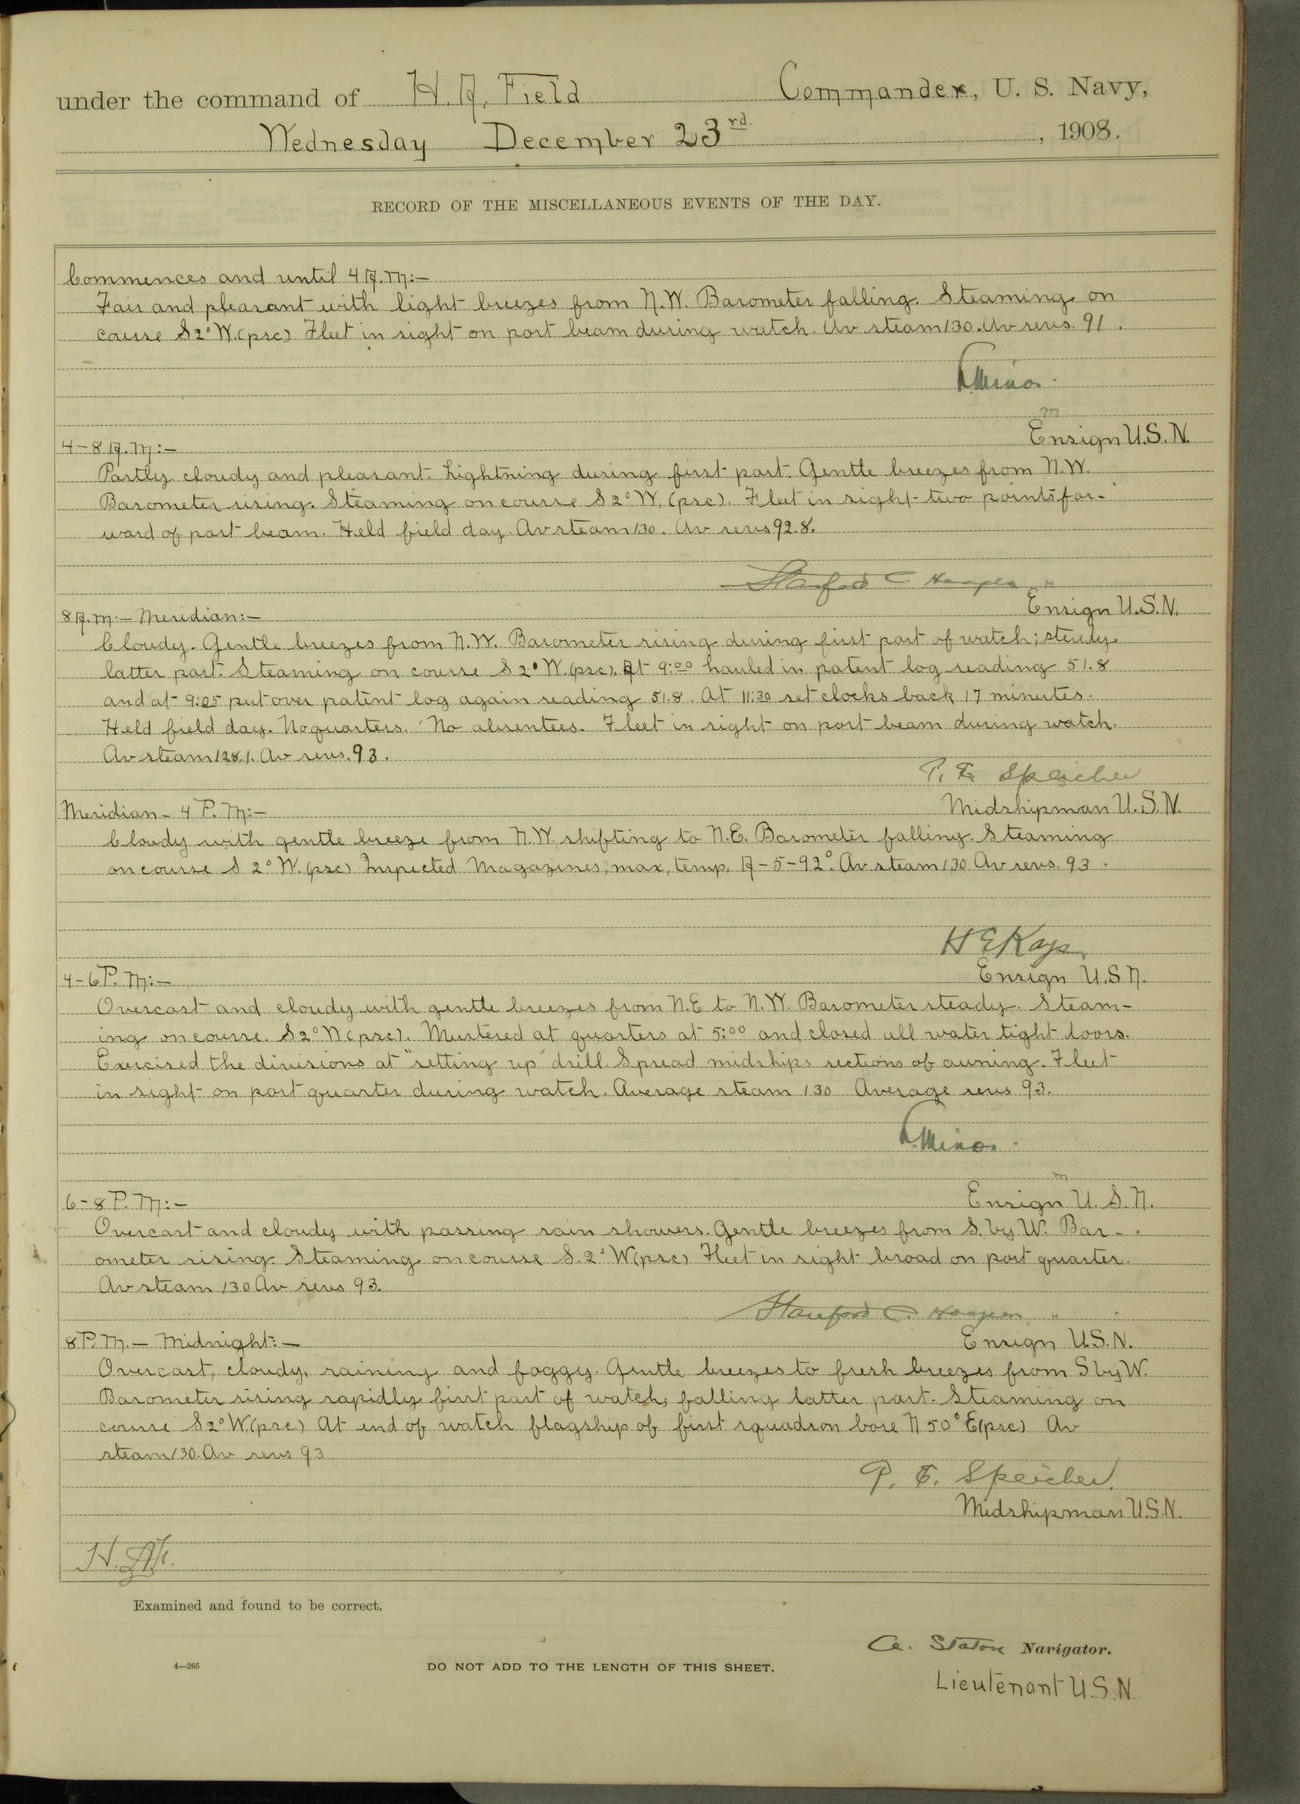 under the command of H. A. Field Commander, U. S. Navy,
Wednesday December 23rd, 1908.
RECORD OF THE MISCELLANEOUS EVENTS OF THE DAY.
Commences and until 4 A.M:—
Fair and pleasant with light breezes from N.W. Barometer falling. Steaming on
course S 2° W. (psc) Fleet in sight on port beam during watch. Av steam 130. Av revs. 91.
Ensign U.S.N.
4-8 A.M:—
Partly cloudy and pleasant. Lightning during first part. Gentle breezes from N.W.
Barometer rising. Steaming on course S 2° W. (psc). Fleet in sight two points for-
ward of port beam. Held field day. Av steam 130. Av revs 92.8.
Stanford C Hooper
Ensign U.S.N.
8 A.M.— Meridian:—
Cloudy. Gentle breezes from N.W. Barometer rising during first part of watch; steady
latter part. Steaming on course S 2° W (psc). At 9:00 hauled in patent log reading 51.8
and at 9:05 put over patent log again reading 51.8. At 11:30 set clocks back 17 minutes.
Held field day. No quarters. No absentees. Fleet in sight on port beam during watch.
Av steam 128.1. Av revs. 93.
P. E. Speicher
Midshipman U.S.N.
Meridian — 4 P.M:—
Cloudy with gentle breeze from N.W. shifting to N.E. Barometer falling. Steaming
on course S 2° W. (psc) Inspected Magazines, max, temp, A-5-92°. Av steam 130 Av revs. 93.
H E Kays
Ensign U.S.N.
4-6 P.M:—
Overcast and cloudy with gentle breezes from N.E to N.W. Barometer steady. Steam-
ing on course S 2° W (psc). Mustered at quarters at 5:00 and closed all water tight doors.
Exercised the divisions at "setting up" drill. Spread midships sections of awning. Fleet
in sight on port quarter during watch. Average steam 130 Average revs 93.
Ensign U.S.N.
6-8 P.M:—
Overcast and cloudy with passing rain showers. Gentle breezes from S. by W. Bar-
ometer rising. Steaming on course S. 2° W (psc) Fleet in sight broad on port quarter.
Av steam 130 Av revs 93.
Stanford C. Hooper
Ensign U.S.N.
8 P.M.— Midnight:—
Overcast, cloudy, raining and foggy. Gentle breezes to fresh breezes from S by W.
Barometer rising rapidly first part of watch; falling latter part. Steaming on
course S 2° W. (psc) At end of watch flagship of first squadron bore N 50° E (psc) Av
steam 130. Av revs 93
P. E. Speicher,
Midshipman U.S.N.
Examined and found to be correct.
A. Staton Navigator.
4—265
DO NOT ADD TO THE LENGTH OF THIS SHEET.
Lieutenant U.S.N